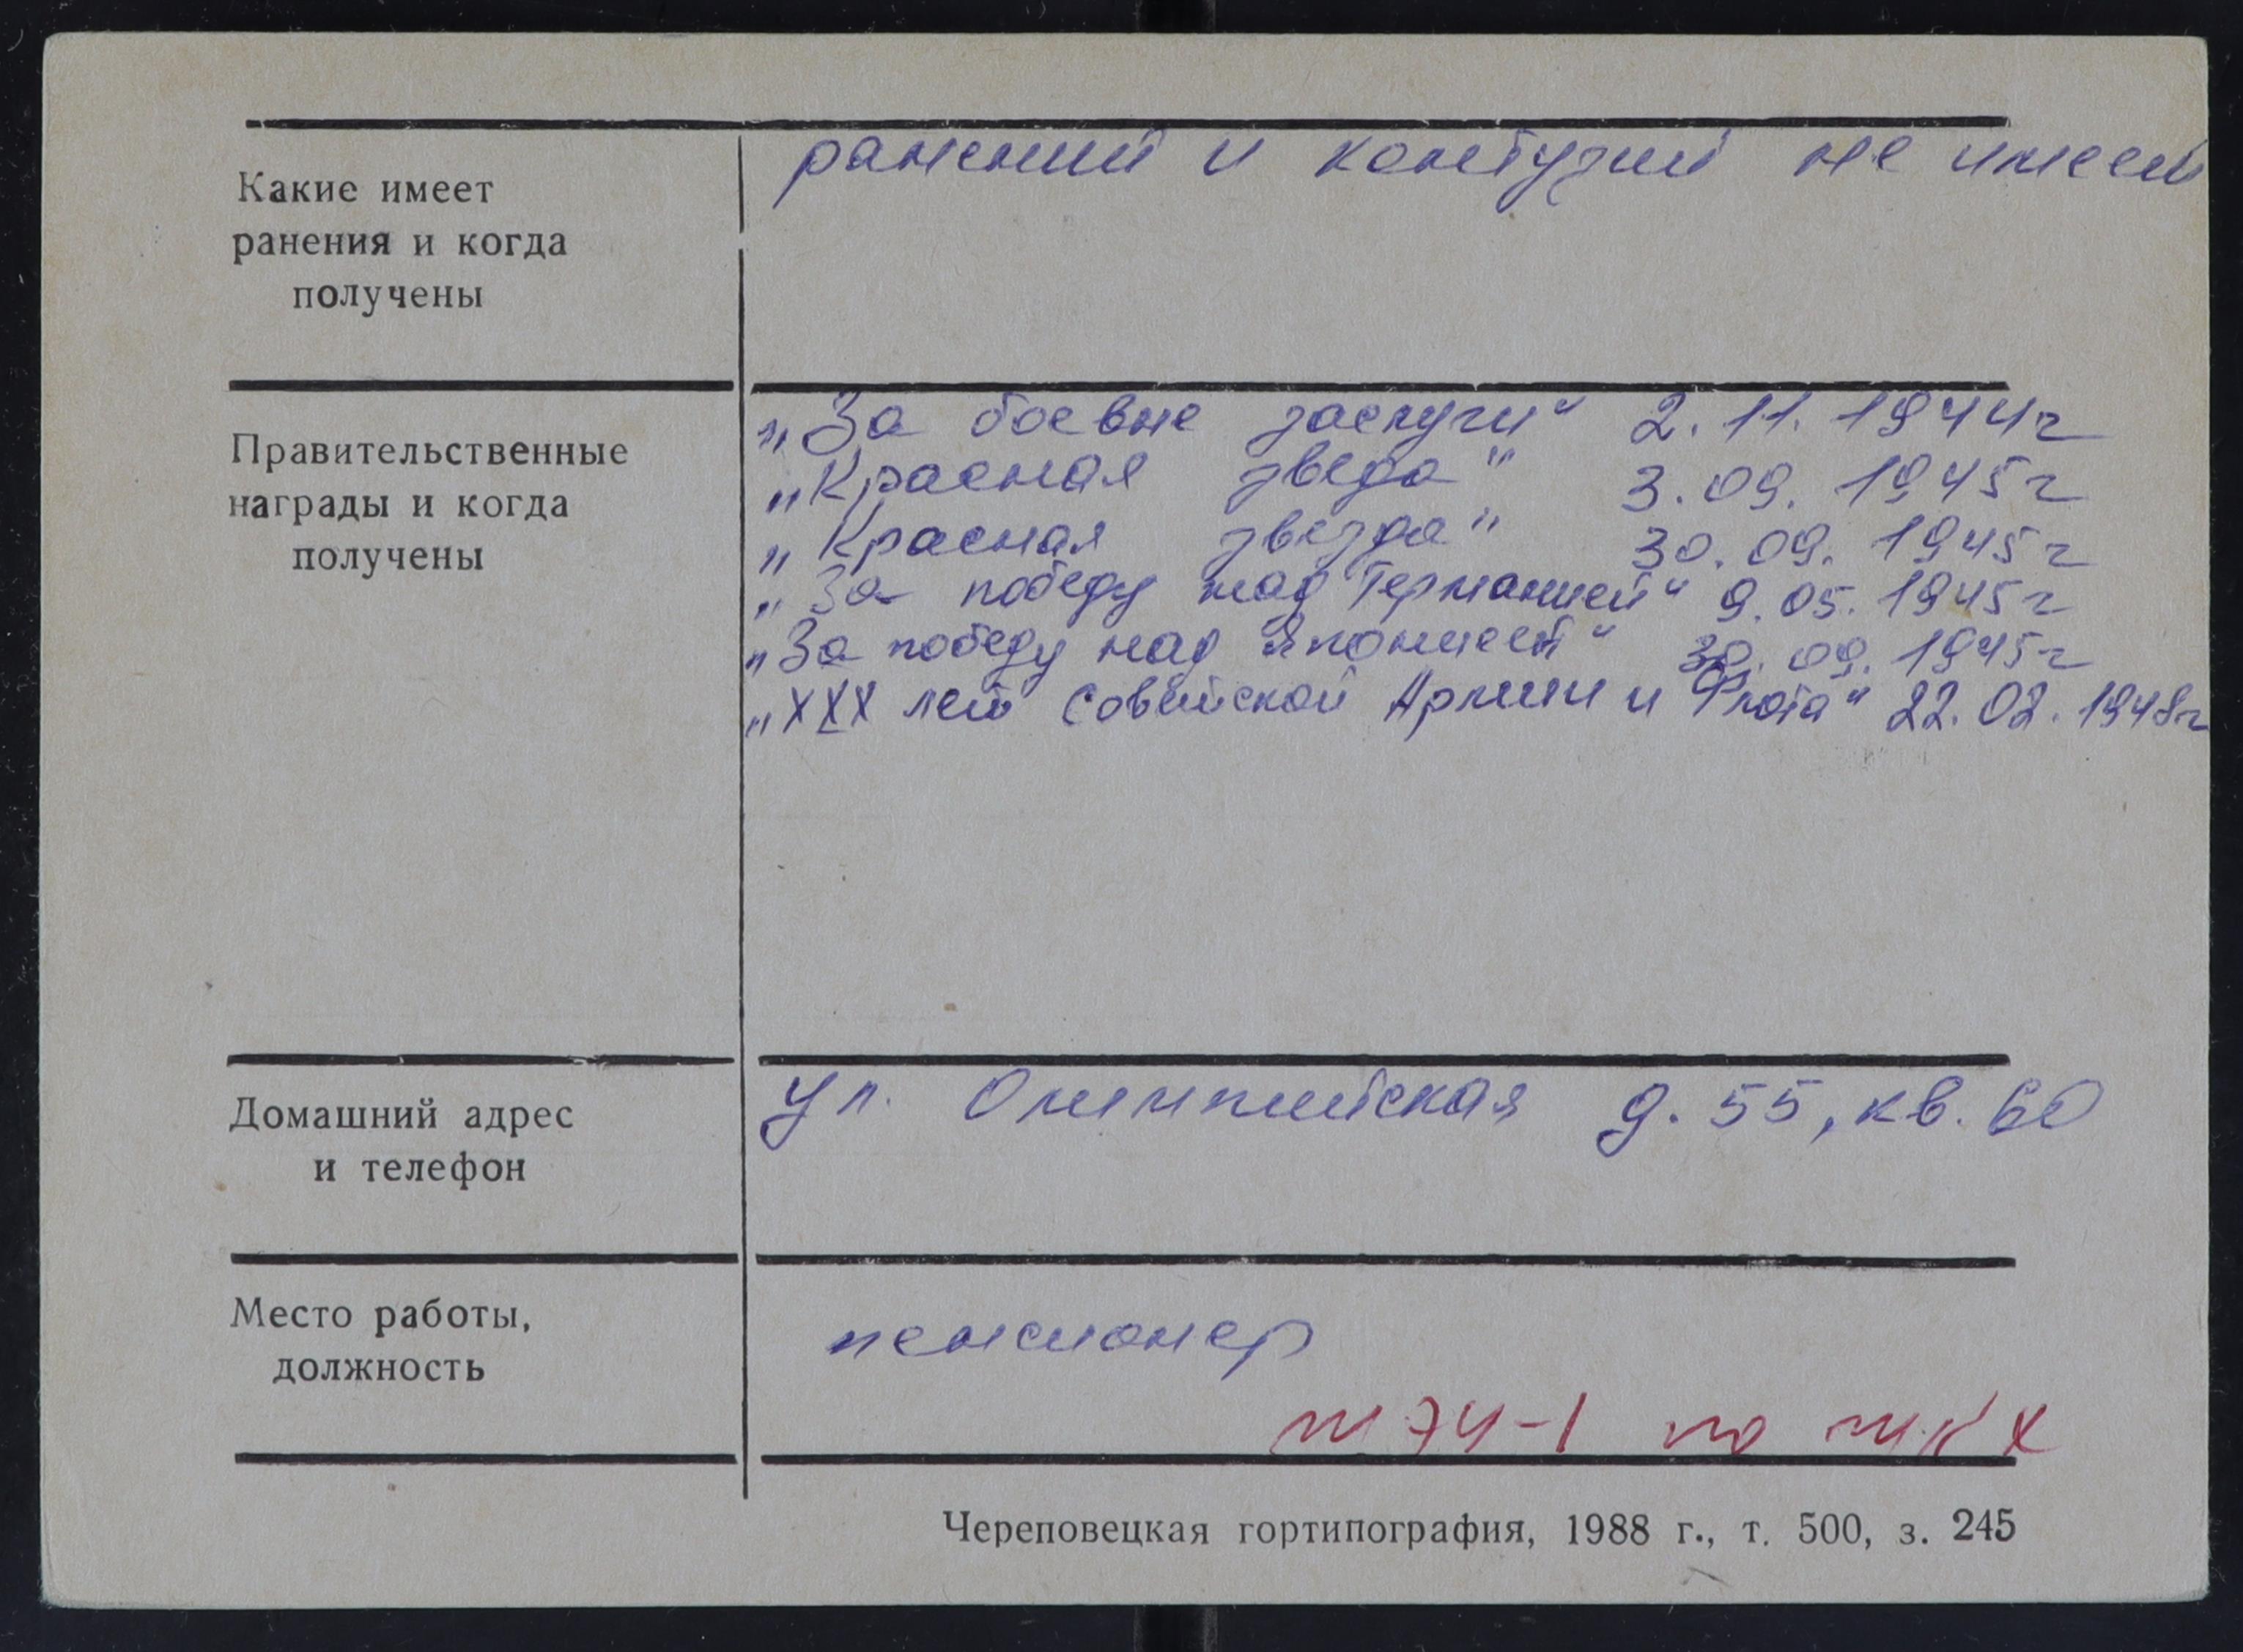 Какие имеет
ранения и когда
получены
ранений и контузий не имеет
Правительственные
награды и когда
получены
„За боевые заслуги“ 2.11.1944г
„Красная звезда“ 3.09.1945г
„Красная звезда“ 30.09.1945г
„За победу над Германией“ 9.05.1945г
„За победу над Японией“ 30.09.1945г
„XXX лет Советской Армии и Флота“ 22.02.1948г
Домашний адрес
и телефон
ул. Олимпийская д. 55, кв. 60
Место работы,
должность
пенсионер
Череповецкая гортипография, 1988 г., т. 500, з. 245